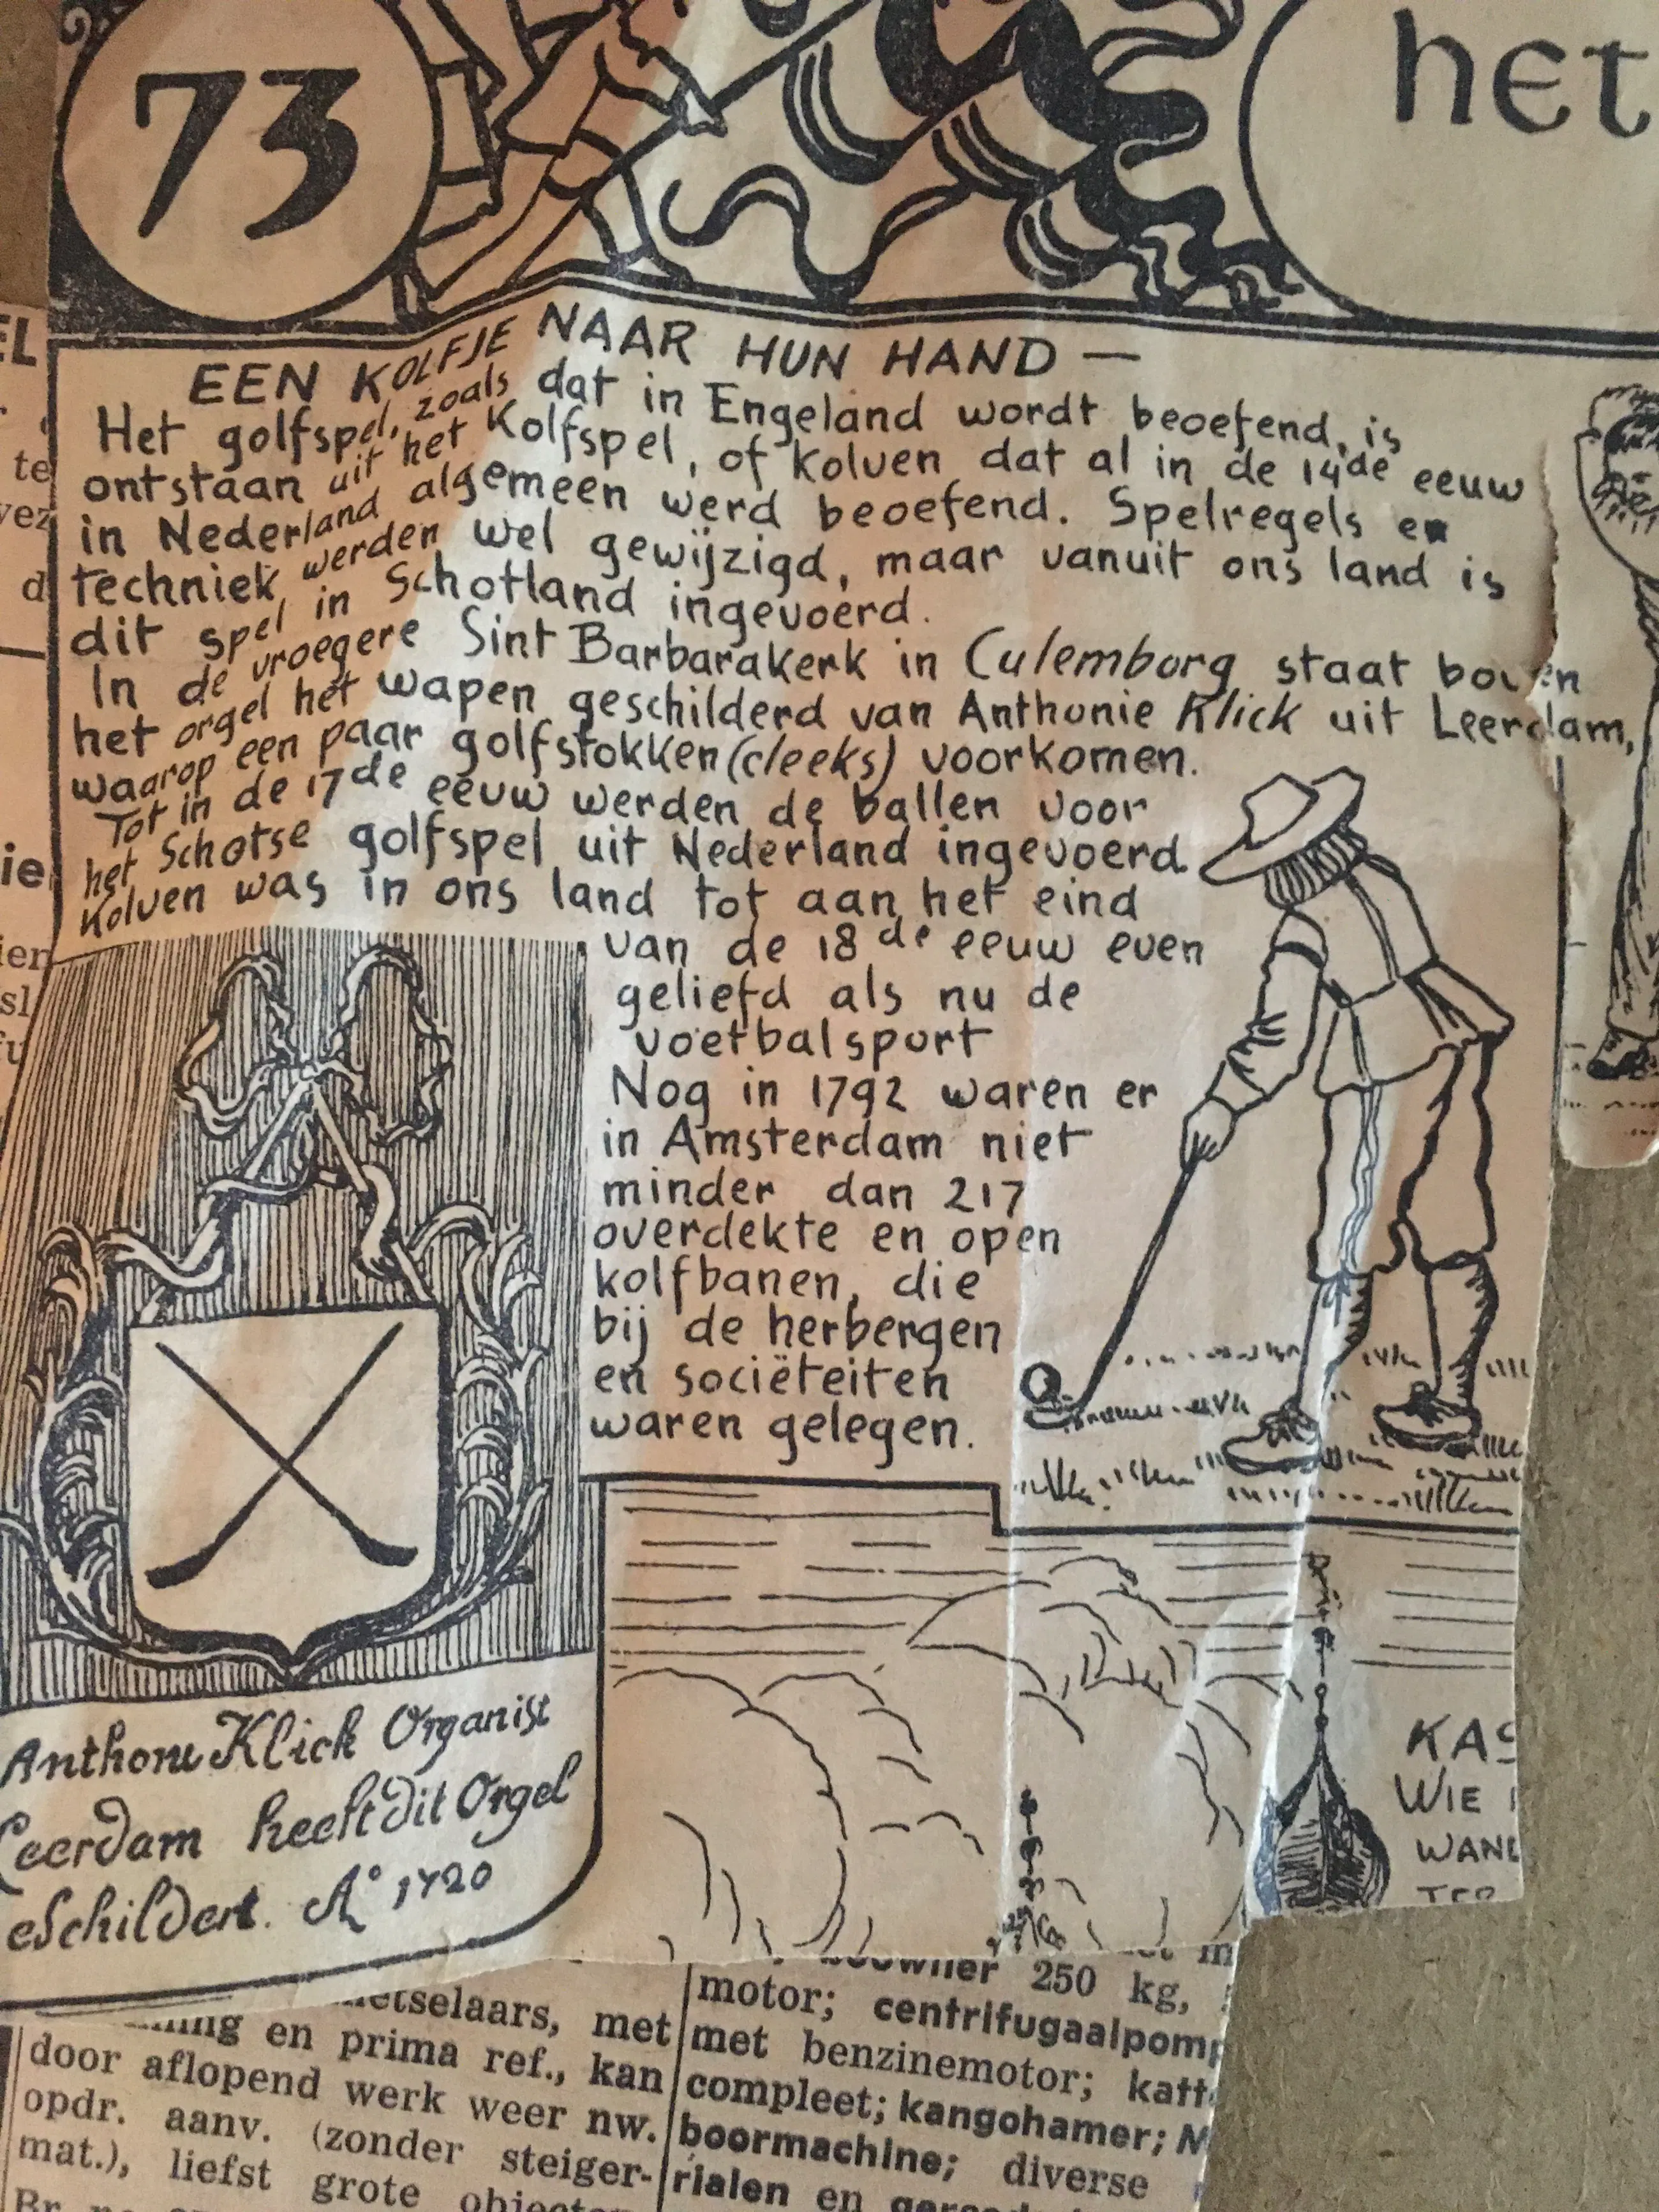 73
het
EEN KOLFJE NAAR HUN HAND —
Het golfspel, zoals dat in Engeland wordt beoefend, is
ontstaan uit het Kolfspel, of kolven dat al in de 14de eeuw
in Nederland algemeen werd beoefend. Spelregels en
techniek werden wel gewijzigd, maar vanuit ons land is
dit spel in Schotland ingevoerd.
In de vroegere Sint Barbarakerk in Culemborg staat boven
het orgel het wapen geschilderd van Anthonie Klick uit Leerdam,
waarop een paar golfstokken (cleeks) voorkomen.
Tot in de 17de eeuw werden de ballen voor
het Schotse golfspel uit Nederland ingevoerd.
Kolven was in ons land tot aan het eind
van de 18de eeuw even
geliefd als nu de
voetbalsport
Nog in 1792 waren er
in Amsterdam niet
minder dan 217
overdekte en open
kolfbanen, die
bij de herbergen
en sociëteiten
waren gelegen.
Anthoni Klick Organist
Leerdam heeft dit Orgel
eschildert. A° 1720
KAS
WIE
WAND
EL
te
vez
d
ie
ier
sl
fu
etselaars, met
ing en prima ref., kan
door aflopend werk weer nw.
opdr. aanv. (zonder steiger-
mat.), liefst grote objecten
250 kg,
motor; centrifugaalpomp
met benzinemotor; katt
compleet; kangohamer; M
boormachine; diverse
rialen en gereed